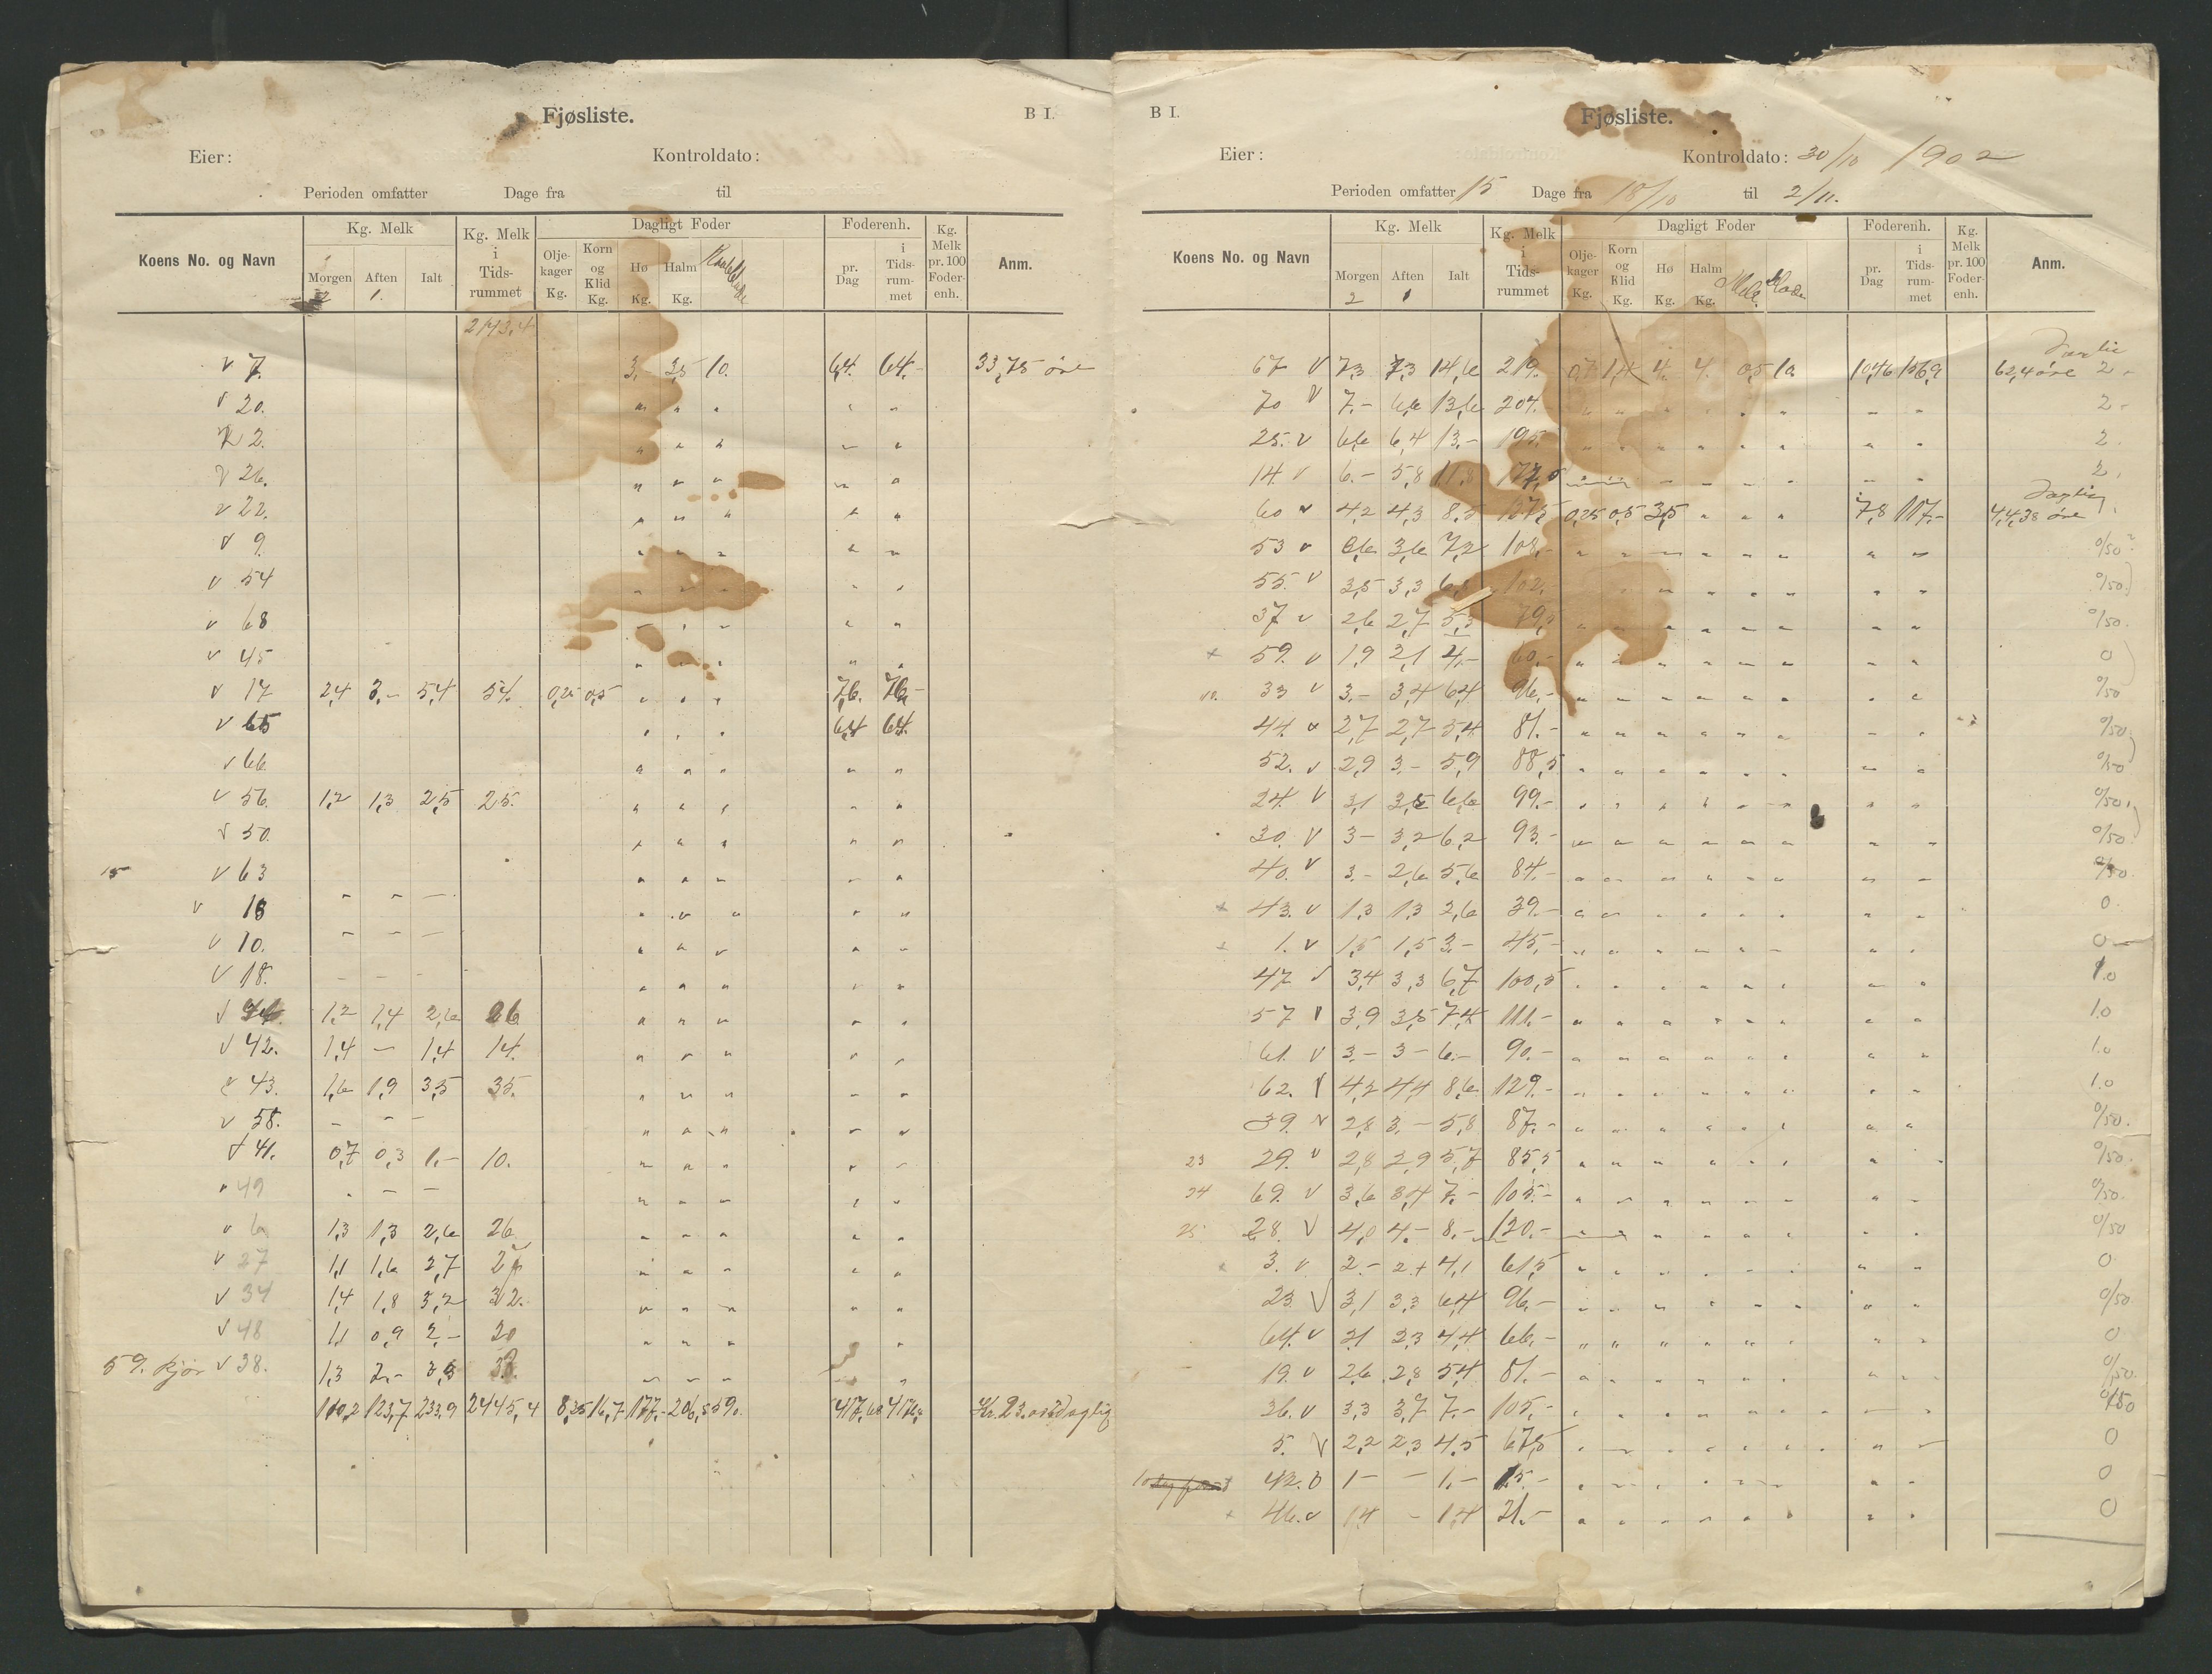 Fjøsliste. B I.
Eier: Kontroldato:
Perioden omfatter Dage fra til
Koens No. og Navn
Kg. Melk
Morgen Aften Ialt
2 1.
Kg. Melk i Tids-rummet
Dagligt Foder
Olje-kager Kg.
Korn og Klid Kg.
Hø Kg.
Halm Kg.
Foderenh.
pr. Dag
i Tids-rum-met
Kg. Melk pr. 100 Foder-enh.
Anm.
2143,4
v 7. 3. 3,5 10. 6,4. 64.- 33,75 øre
v 20. " " " " "
2. " " " " "
v 26. " " " " "
v 22. " " " " "
v 9. " " " " "
v 54 " " " " "
v 68 " " " " "
v 45 " " " " "
v 17 2,4 3.- 5,4 54. 0,25 0,5 " " " 7,6. 76.-
v 65 " " " 6,4 64.
v 66 " " " " "
v 56. 1,2 1,3 2,5 25. " " " " "
v 50. " " " " "
15 v 63 " " " " "
v 18 - - - " " " " "
v 10. - - - " " " " "
v 18. - - - " " " " "
v 1,2 1,4 2,6 26 " " " " "
v 42. 1,4 - 1,4 14. " " " " "
v 43. 1,6 1,9 3,5 35. " " " " "
v 58. - - - " " " " "
v 41. 0,7 0,3 1.- 10. " " " " "
v 49 - - - " " " " "
v 6 1,3 1,3 2,6 26 " " " " "
v 27 1,1 1,6 2,7 27 " " " " "
v 34 1,4 1,8 3,2 32. " " " " "
v 48 1,1 0,9 2,- 20 " " " " "
59. kjør v 38. 1,3 2.- 3,3 33. " " " " "
110,2 123,7 233,9 2445,4 8,25 16,7 177.- 206,5 590. 417,60 4176,0
B I. Fjøsliste.
Eier: Kontroldato: 30/10 1902
Perioden omfatter 15 Dage fra 18/10 til 2/11.
Koens No. og Navn
Kg. Melk
Morgen Aften Ialt
2 1
Kg. Melk i Tids-rummet
Dagligt Foder
Olje-kager Kg.
Korn og Klid Kg.
Hø Kg.
Halm Kg.
Foderenh.
pr. Dag
i Tids-rum-met
Kg. Melk pr. 100 Foder-enh.
Anm.
Daglig
67 v 7,3 7,3 14,6 219. 0,7 1,4 4. 4. 0,5 10. 10,46 156,9 62,4 øre 2-
70 v 7.- 6,6 13,6 204. " " " " " " " " 2-
25. v 6,6 6,4 13.- 195. " " " " " " " " 2.
14 v 6.- 5,8 11,8 177,0 " " " " " " " " 2.
Daglig
60 v 4,2 4,3 8,5 127,5 0,25 0,5 3,5 " " " 7,8 117.- 44,38 øre 1.
53 v 3,6 3,6 7,2 108,- " " " " " " " " 0/50
55. v 3,5 3,3 6,8 102.- " " " " " " " " 0/50.
37 v 2,6 2,7 5,3 79,5 " " " " " " " " 0/50.
+ 59. v 1,9 2,1 4.- 60.- " " " " " " " " 0
10. 33 v 3.- 3,4 6,4 96,- " " " " " " " " 0/50
44. v 2,7 2,7 5,4 81.- " " " " " " " " 0/50
52. v 2,9 3.- 5,9 88,5 " " " " " " " " 0/50
24. v 3,1 3,5 6,6 99.- " " " " " " " " 0/50
30. v 3- 3,2 6,2 93.- " " " " " " " " 0/50
40. v 3.- 2,6 5,6 84.- " " " " " " " " 0/50.
+ 43. v 1,3 1,3 2,6 39.- " " " " " " " " 0.
+ 1. v 1,5 1,5 3.- 45,- " " " " " " " " 0
47 v 3,4 3,3 6,7 100,5 " " " " " " " " 1.0
57 v 3,9 3,5 7,4 111.- " " " " " " " " 1.0
61. v 3.- 3- 6.- 90.- " " " " " " " " 1.0
62. v 4,2 4,4 8,6 129.- " " " " " " " " 1.0
39. v 2,8 3.- 5,8 87.- " " " " " " " " 0/50.
23 29. v 2,8 2,9 5,7 85,5 " " " " " " " " 0/50.
24 69. v 3,6 3,4 7.- 105.- " " " " " " " " 0/50.
25 28. v 4,0 4.- 8.- 120.- " " " " " " " " 0/50
+ 3. v 2.- 2,1 4,1 61,5 " " " " " " " " 0
23. v 3,1 3,3 6,4 96.- " " " " " " " " 0/50.
64. v 2,1 2,3 4,4 66.- " " " " " " " " 0
19. v 2,6 2,8 5,4 81.- " " " " " " " " 0/50.
36. v 3,3 3,7 7.- 105,- " " " " " " " " 0/50
5. v 2,2 2,3 4,5 67,5 " " " " " " " " 0
42. v 1- - 1.- 15.- " " " " " " " " 0
+ 46. v 1,4 - 1,4 21.- " " " " " " " " 0